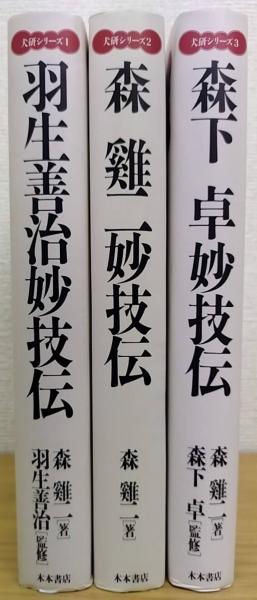 犬研シリーズ1
羽生善治妙技伝
森 雞二[著]
羽生善治[監修]
木本書店
犬研シリーズ2
森 雞二妙技伝
森 雞二[著]
木本書店
犬研シリーズ3
森下 卓妙技伝
森 雞二[著]
森下 卓[監修]
木本書店